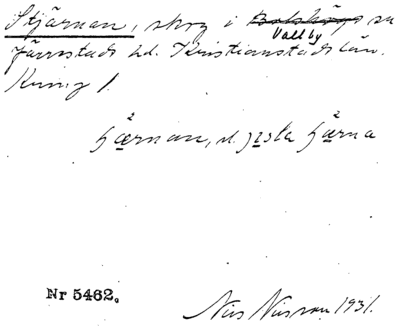 Stjärnan, skog i Bolshögs sn
Vallby
Järrestads hd. Kristianstads län.
Kring 1.
hjærnan, el. jesla hjærna
Nr 5462.
Nils Nilsson 1931.